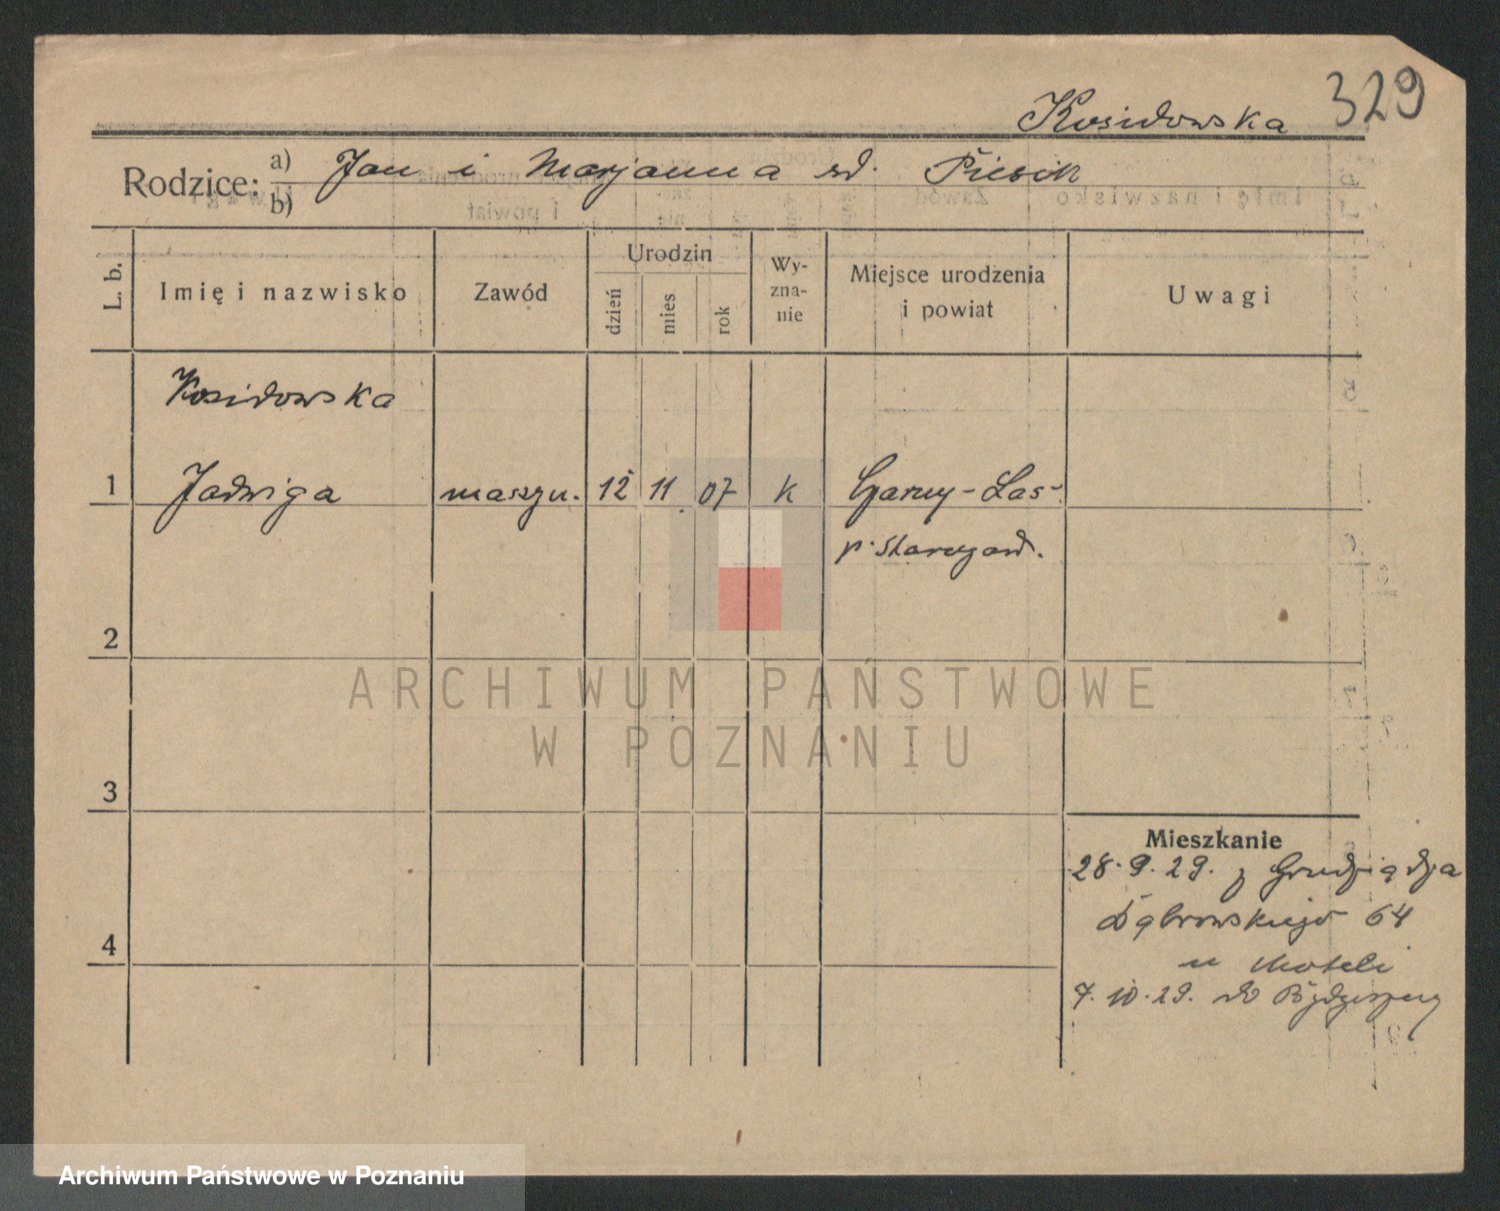 329
Kosidowska
Rodzice: a) Jan i Marjanna rd. Piesik
b)
L. b.
Imię i nazwisko
Zawód
Urodzin
dzień
mies
rok
Wy-
zna-
nie
Miejsce urodzenia
i powiat
Uwagi
Kosidowska
1 Jadwiga maszyn. 12 11 07 k Czarny-Las-
p. Starogard.
2
3
4
Mieszkanie
28.9.29. z Grudziądza
Dąbrowskiego 64
u
7.10.29. do Bydgoszczy
ARCHIWUM PAŃSTWOWE
W POZNANIU
Archiwum Państwowe w Poznaniu